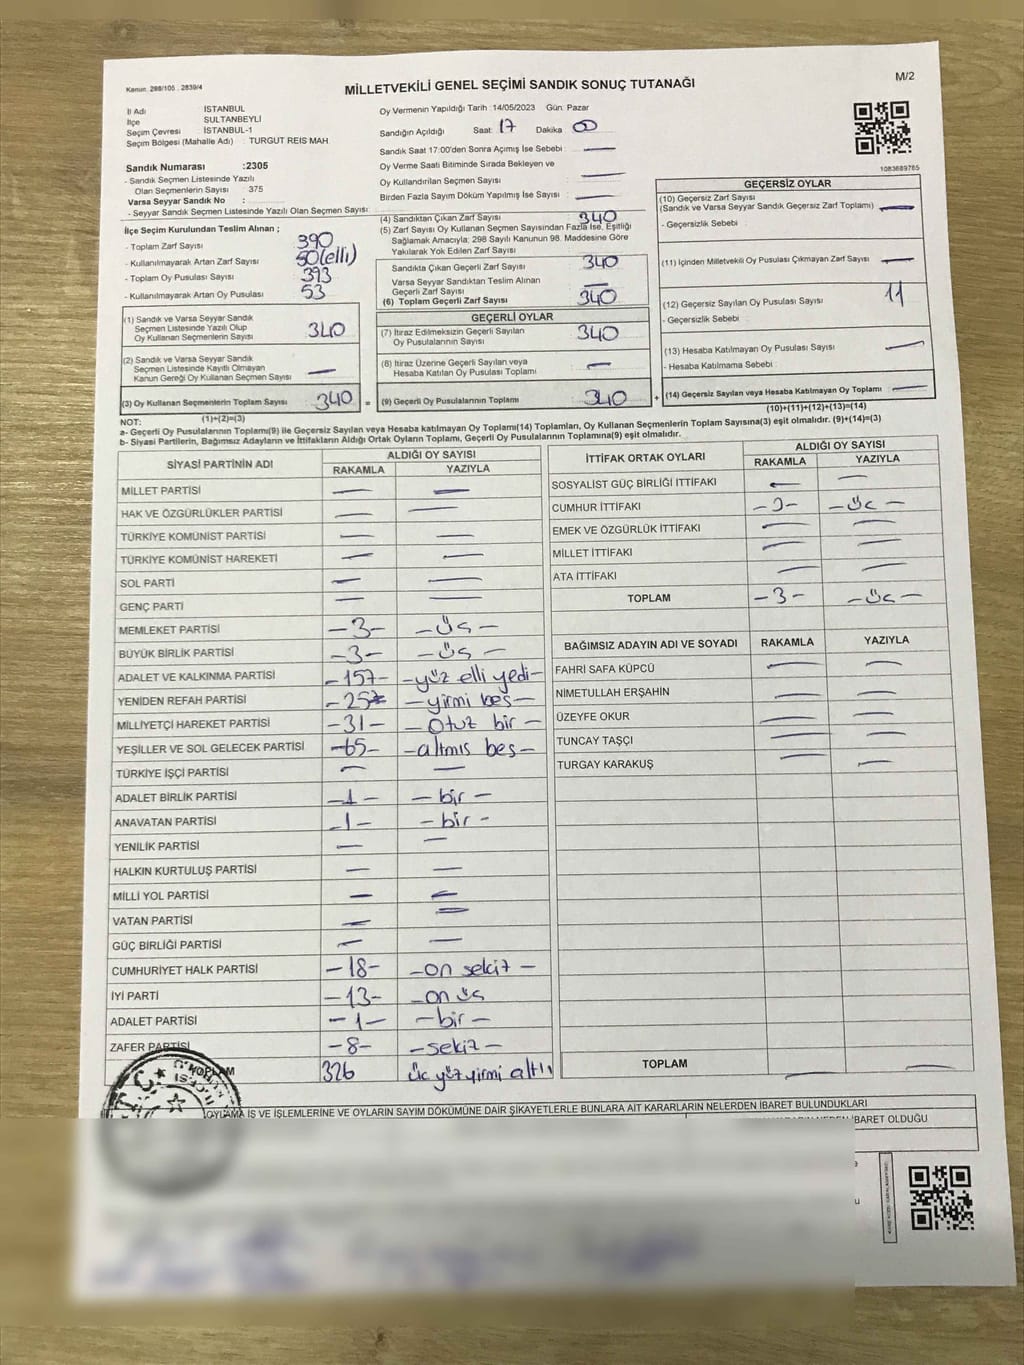 Kanun. 298/105 , 2839/4
MİLLETVEKİLİ GENEL SEÇİMİ SANDIK SONUÇ TUTANAĞI
M/2
İl Adı İSTANBUL
İlçe SULTANBEYLİ
Seçim Çevresi İSTANBUL-1
Seçim Bölgesi (Mahalle Adı) : TURGUT REIS MAH
Sandık Numarası :2305
- Sandık Seçmen Listesinde Yazılı
Olan Seçmenlerin Sayısı : 375
Varsa Seyyar Sandık No :
- Seyyar Sandık Seçmen Listesinde Yazılı Olan Seçmen Sayısı:
Oy Vermenin Yapıldığı Tarih : 14/05/2023 Gün: Pazar
Sandığın Açıldığı Saat: 17 Dakika 00
Sandık Saat 17:00'den Sonra Açımış İse Sebebi : —
Oy Verme Saati Bitiminde Sırada Bekleyen ve
Oy Kullandırılan Seçmen Sayısı : —
Birden Fazla Sayım Döküm Yapılmış İse Sayısı : —
1083689765
İlçe Seçim Kurulundan Teslim Alınan ;
- Toplam Zarf Sayısı : 390
- Kullanılmayarak Artan Zarf Sayısı : 50(elli)
- Toplam Oy Pusulası Sayısı : 393
- Kullanılmayarak Artan Oy Pusulası : 53
(1) Sandık ve Varsa Seyyar Sandık
Seçmen Listesinde Yazılı Olup
Oy Kullanan Seçmenlerin Sayısı : 340
(2) Sandık ve Varsa Seyyar Sandık
Seçmen Listesinde Kayıtlı Olmayan
Kanun Gereği Oy Kullanan Seçmen Sayısı : —
(3) Oy Kullanan Seçmenlerin Toplam Sayısı : 340 =
(1)+(2)=(3)
(4) Sandıktan Çıkan Zarf Sayısı : 340
(5) Zarf Sayısı Oy Kullanan Seçmen Sayısından Fazla İse, Eşitliği
Sağlamak Amacıyla; 298 Sayılı Kanunun 98. Maddesine Göre
Yakılarak Yok Edilen Zarf Sayısı :
Sandıkta Çıkan Geçerli Zarf Sayısı : 340
Varsa Seyyar Sandıktan Teslim Alınan
Geçerli Zarf Sayısı : —
(6) Toplam Geçerli Zarf Sayısı : 340
GEÇERLİ OYLAR
(7) İtiraz Edilmeksizin Geçerli Sayılan
Oy Pusulalarının Sayısı : 340
(8) İtiraz Üzerine Geçerli Sayılan veya
Hesaba Katılan Oy Pusulası Toplamı : —
(9) Geçerli Oy Pusulalarının Toplamı : 340 +
GEÇERSİZ OYLAR
(10) Geçersiz Zarf Sayısı
(Sandık ve Varsa Seyyar Sandık Geçersiz Zarf Toplamı) : —
- Geçersizlik Sebebi :
(11) İçinden Milletvekili Oy Pusulası Çıkmayan Zarf Sayısı : —
(12) Geçersiz Sayılan Oy Pusulası Sayısı : 11
- Geçersizlik Sebebi :
(13) Hesaba Katılmayan Oy Pusulası Sayısı : —
- Hesaba Katılmama Sebebi :
(14) Geçersiz Sayılan veya Hesaba Katılmayan Oy Toplamı : —
(10)+(11)+(12)+(13)=(14)
NOT:
a- Geçerli Oy Pusulalarının Toplamı(9) ile Geçersiz Sayılan veya Hesaba katılmayan Oy Toplamı(14) Toplamları, Oy Kullanan Seçmenlerin Toplam Sayısına(3) eşit olmalıdır. (9)+(14)=(3)
b- Siyasi Partilerin, Bağımsız Adayların ve İttifakların Aldığı Ortak Oyların Toplamı, Geçerli Oy Pusulalarının Toplamına(9) eşit olmalıdır.
SİYASİ PARTİNİN ADI ALDIĞI OY SAYISI
RAKAMLA YAZIYLA
MİLLET PARTİSİ — —
HAK VE ÖZGÜRLÜKLER PARTİSİ — —
TÜRKİYE KOMÜNİST PARTİSİ — —
TÜRKİYE KOMÜNİST HAREKETİ — —
SOL PARTİ — —
GENÇ PARTİ — —
MEMLEKET PARTİSİ -3- -üç-
BÜYÜK BİRLİK PARTİSİ -3- -üs-
ADALET VE KALKINMA PARTİSİ -157- -yüz elli yedi-
YENİDEN REFAH PARTİSİ -25- -yirmi beş-
MİLLİYETÇİ HAREKET PARTİSİ -31- -Otuz bir-
YEŞİLLER VE SOL GELECEK PARTİSİ -65- -altmıs beş-
TÜRKİYE İŞÇİ PARTİSİ — —
ADALET BİRLİK PARTİSİ -1- -bir-
ANAVATAN PARTİSİ -1- -bir-
YENİLİK PARTİSİ — —
HALKIN KURTULUŞ PARTİSİ — —
MİLLİ YOL PARTİSİ — —
VATAN PARTİSİ — —
GÜÇ BİRLİĞİ PARTİSİ — —
CUMHURİYET HALK PARTİSİ -18- -on sekiz-
İYİ PARTİ -13- -on üs
ADALET PARTİSİ -1- -bir-
ZAFER PARTİSİ -8- -sekiz-
TOPLAM 326 üç yüz yirmi altı
İTTİFAK ORTAK OYLARI ALDIĞI OY SAYISI
RAKAMLA YAZIYLA
SOSYALİST GÜÇ BİRLİĞİ İTTİFAKI — —
CUMHUR İTTİFAKI -3- -üç-
EMEK VE ÖZGÜRLÜK İTTİFAKI — —
MİLLET İTTİFAKI — —
ATA İTTİFAKI — —
TOPLAM -3- -üç-
BAĞIMSIZ ADAYIN ADI VE SOYADI RAKAMLA YAZIYLA
FAHRİ SAFA KÜPCÜ — —
NİMETULLAH ERŞAHİN — —
ÜZEYFE OKUR — —
TUNCAY TAŞÇI — —
TURGAY KARAKUŞ — —
TOPLAM — —
OYLAMA İŞ VE İŞLEMLERİNE VE OYLARIN SAYIM DÖKÜMÜNE DAİR ŞİKAYETLERLE BUNLARA AİT KARARLARIN NELERDEN İBARET BULUNDUKLARI
İBARET OLDUĞU
T.C.